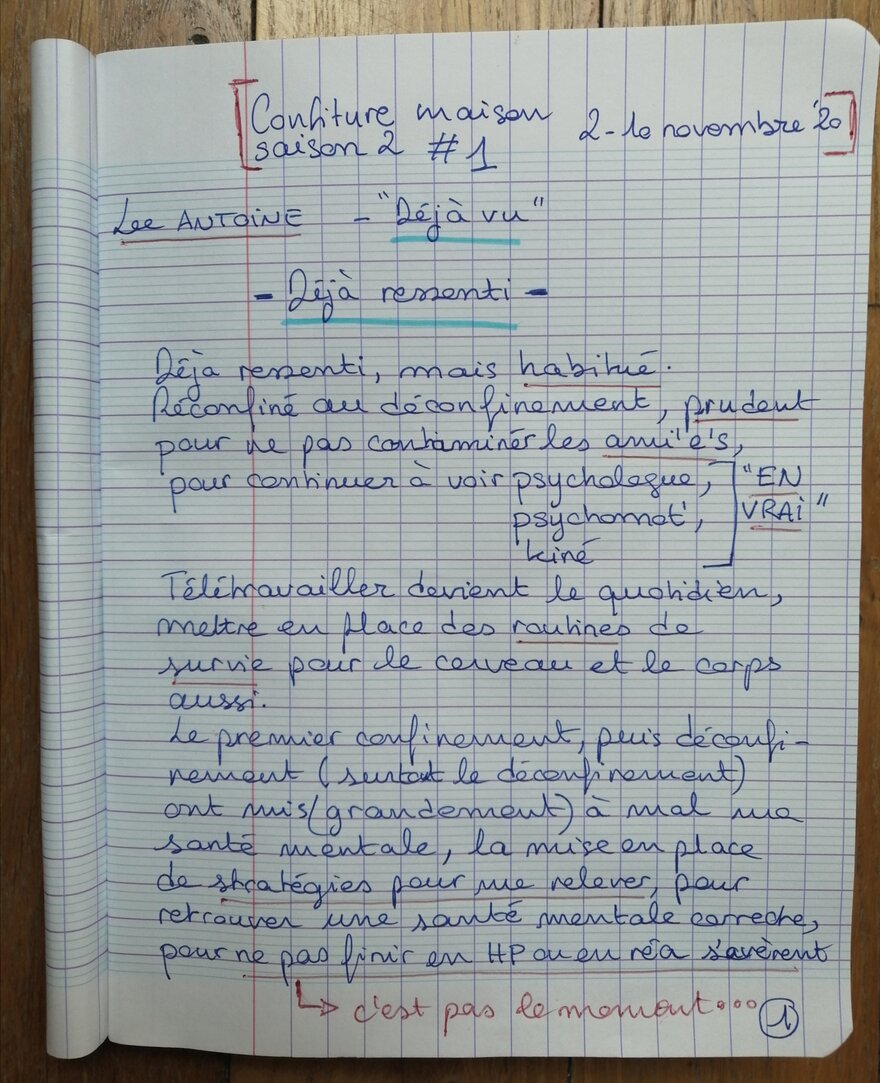 [Confiture maison
saison 2 #1
2-10 novembre '20]
Lee ANTOINE - "Déjà vu"
- Déjà ressenti -
Déjà ressenti, mais habitué.
Réconfiné au déconfinement, prudent
pour ne pas contaminer les ami'e's,
pour continuer à voir psychologue,
psychomot',
kiné
"EN
VRAI"
Télétravailler devient le quotidien,
mettre en place des routines de
survie pour le cerveau et le corps
aussi.
Le premier confinement, puis déconfi-
nement (surtout le déconfinement)
ont mis (grandement) à mal ma
santé mentale, la mise en place
de stratégies pour me relever, pour
retrouver une santé mentale correcte,
pour ne pas finir en HP ou en réa s'avèrent
↳ c'est pas le moment...
1